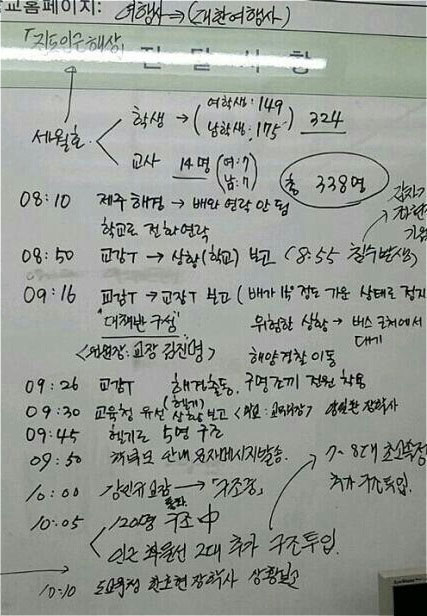 교홈페이지: 여행사→(대한여행사)
「진도인근해상」
전 달 사 항
세월호
학생 → (여학생: 149
남학생: 175) 324
교사 14명 (여: 7
남: 7)
총 338명
08:10 제주 해경 → 배와 연락 안 됨
학교로 전화연락
08:50 교감T → 상황(학교) 보고 (8:55 침수발생)
09:16 교감T → 교장T 보고 (배가 15° 정도 기운 상태로 정지
"대책반 구성" 위험한 상황 → 버스 근처에서
대기
<위원장: 교장 김진명> 해양경찰 이동
09:26 교감T 해경출동, 구명조끼 전원 착용
(헬기)
09:30 교육청 유선 상황보고
09:45 헬기로 5명 구조
09:50 안내 문자메시지발송.
10:00 → 「구조중」
통화
10:05 120명 구조 中
인근 화물선 2대 추가 구조투입.
7~8대
추가 구조투입.
10:10 도교육청 장학사 상황보고